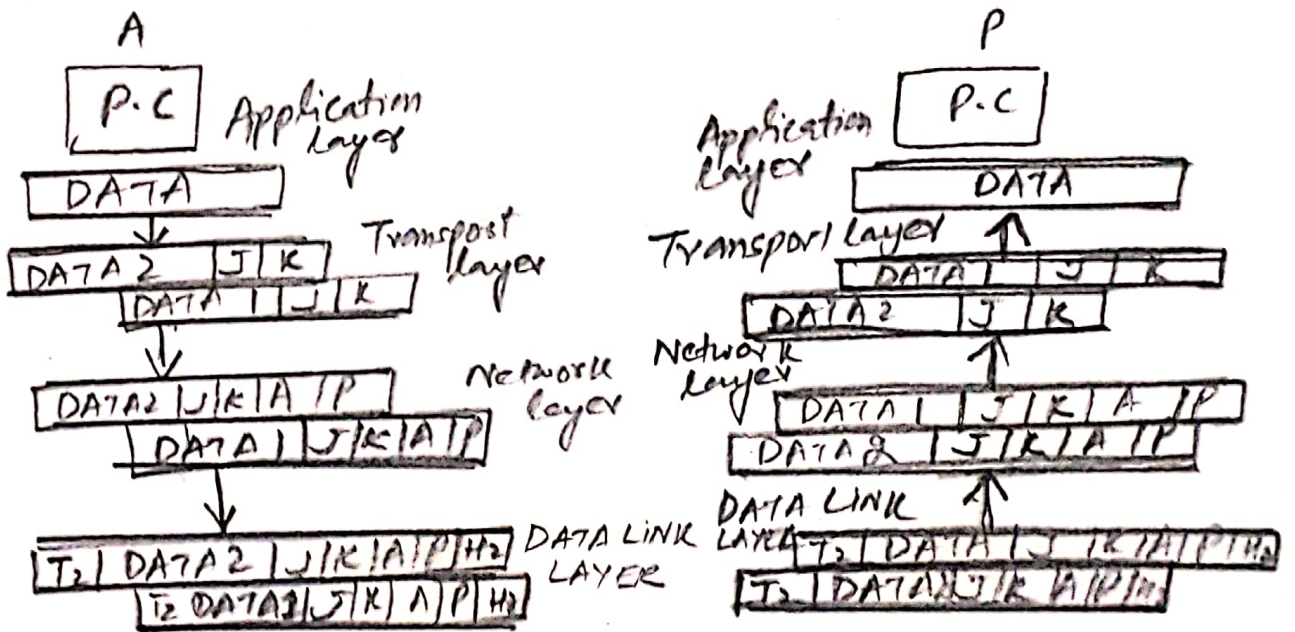 A
P.C
Application
Layer
DATA
DATA 2 | J | K
Transport
layer
DATA 1 | J | K
DATA2 | J | K | A | P
Network
layer
DATA 1 | J | K | A | P
T2 | DATA 2 | J | K | A | P | H2
DATA LINK
LAYER
T2 DATA1 | J | K | A | P | H2
P
P.C
Application
Layer
DATA
Transport layer
DATA 1 | J | K
DATA 2 | J | K
Network
layer
DATA 1 | J | K | A | P
DATA 2 | J | K | A | P
DATA LINK
LAYER
T2 | DATA | J | K | A | P | H2
T2 | DATA | J | K | A | P |